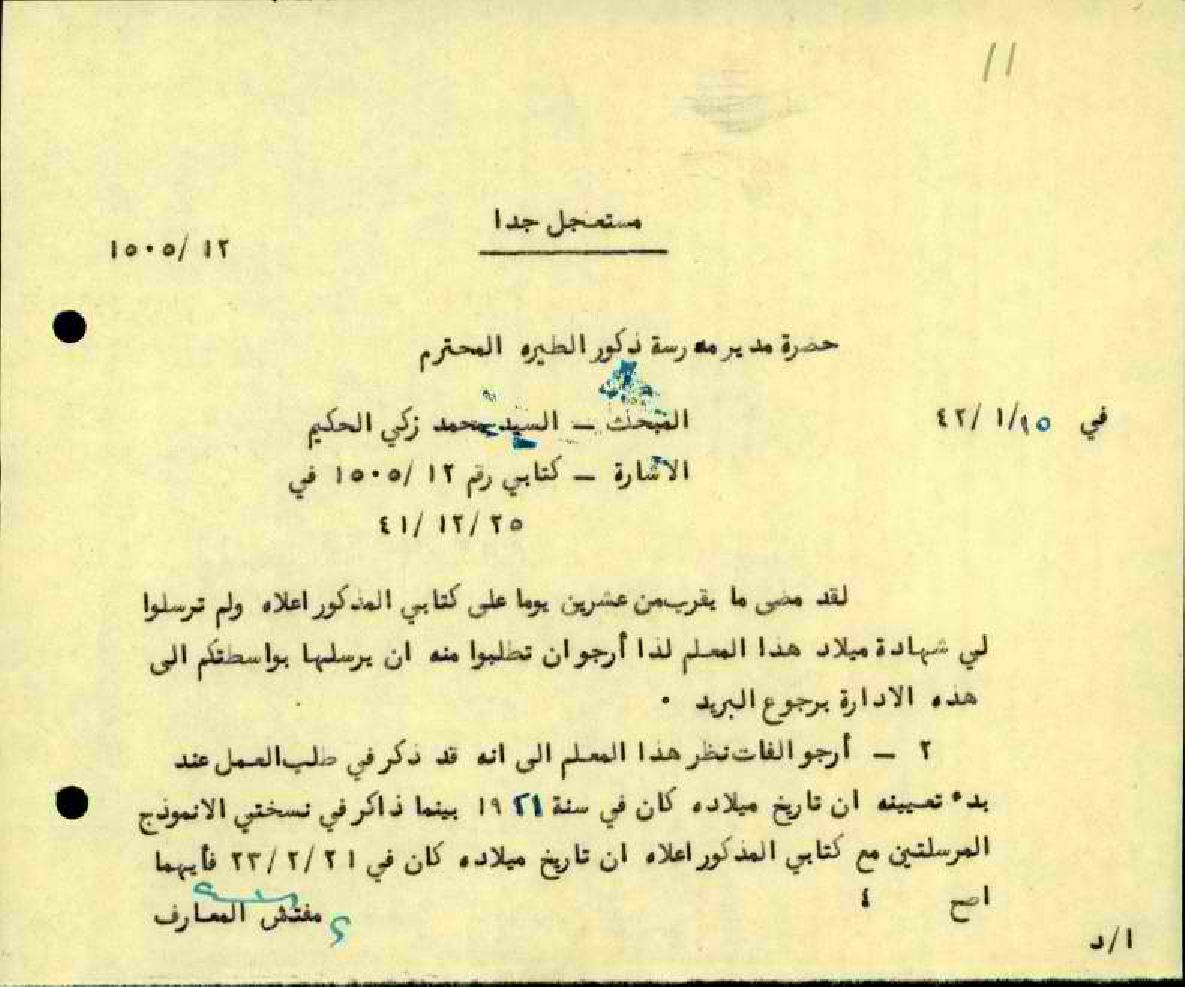 ١١
مستعجل جدا
١٥٠٥/ ١٢
حضرة مدير مدرسة ذكور الطيره المحترم
في ١٥/ ١/ ٤٢
المبحث – السيد محمد زكي الحكيم
الاشارة – كتابي رقم ١٢ /١٥٠٥ في
٢٥ /١٢ /٤١
لقد مضى ما يقرب من عشرين يوما على كتابي المذكور اعلاه ولم ترسلوا
لي شهادة ميلاد هذا المعلم لذا أرجو ان تطلبوا منه ان يرسلها بواسطتكم الى
هذه الادارة برجوع البريد ٠
٢ – أرجو الفات نظر هذا المعلم الى انه قد ذكر في طلب العمل عند
بدء تعيينه ان تاريخ ميلاده كان في سنة ١٩٢١ بينما ذاكر في نسختي الانموذج
المرسلتين مع كتابي المذكور اعلاه ان تاريخ ميلاده كان في ٢١ /٢ /٢٣ فأيهما
اصح ٤
مفتش المعارف
ا/د